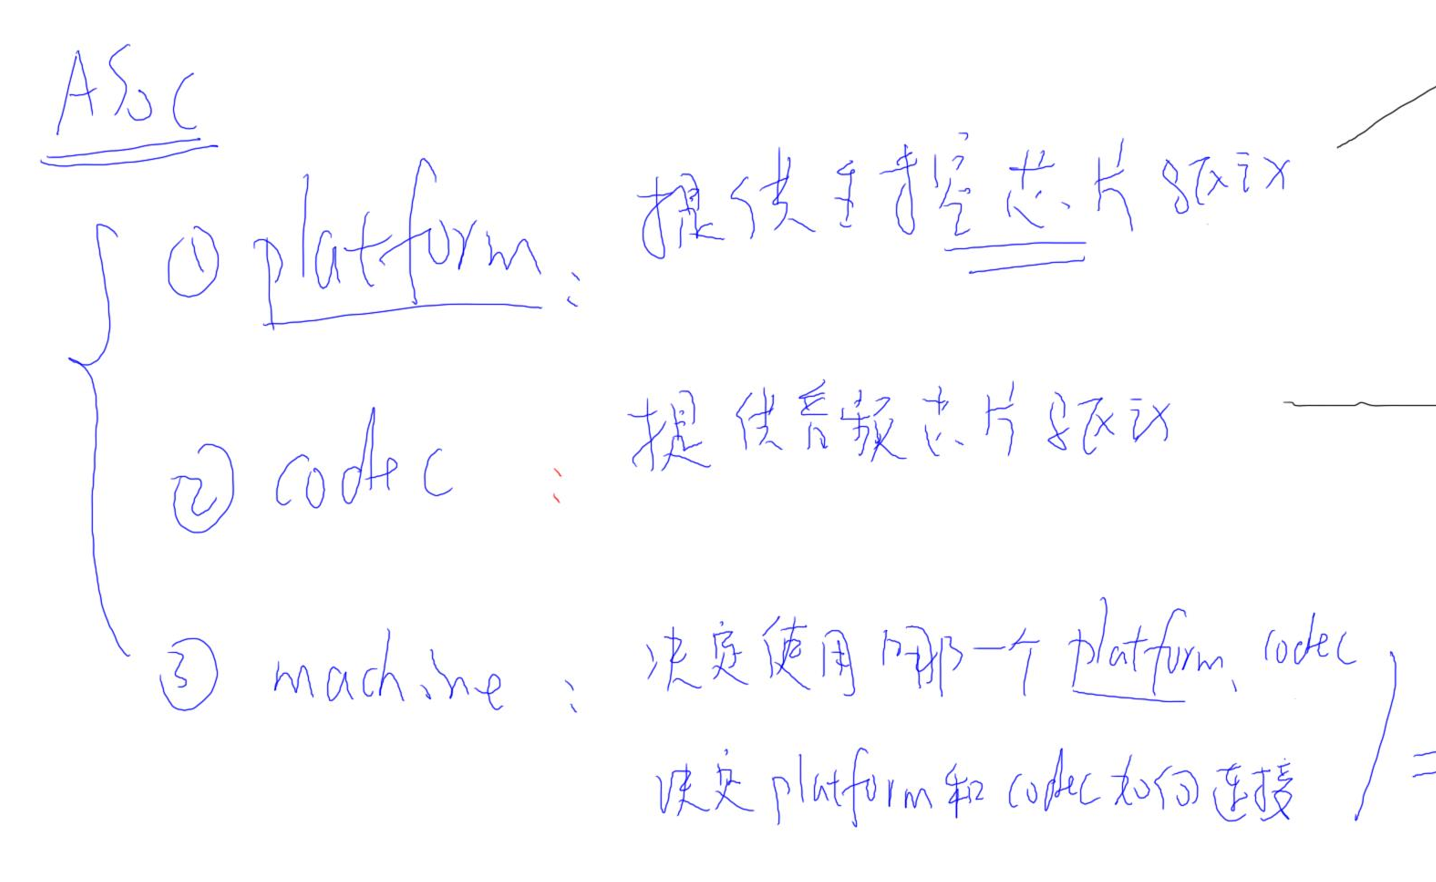 ASoC
① platform: 提供主控芯片驱动
② codec : 提供音频芯片驱动
③ machine: 决定使用哪一个platform、codec
决定platform和codec如何连接